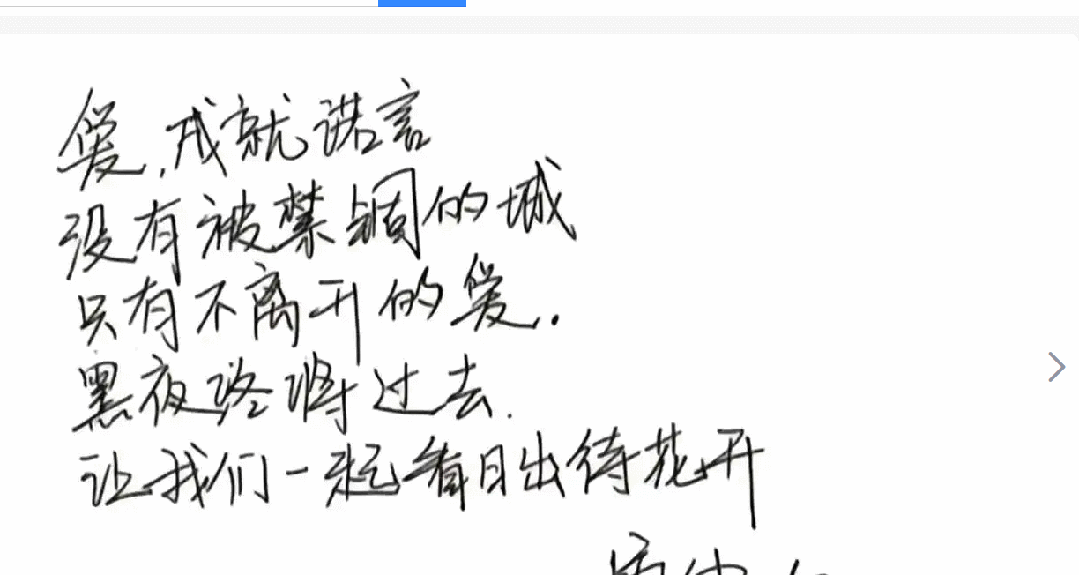 爱,成就诺言
没有被禁锢的城
只有不离开的爱.
黑夜终将过去.
让我们一起看日出待花开